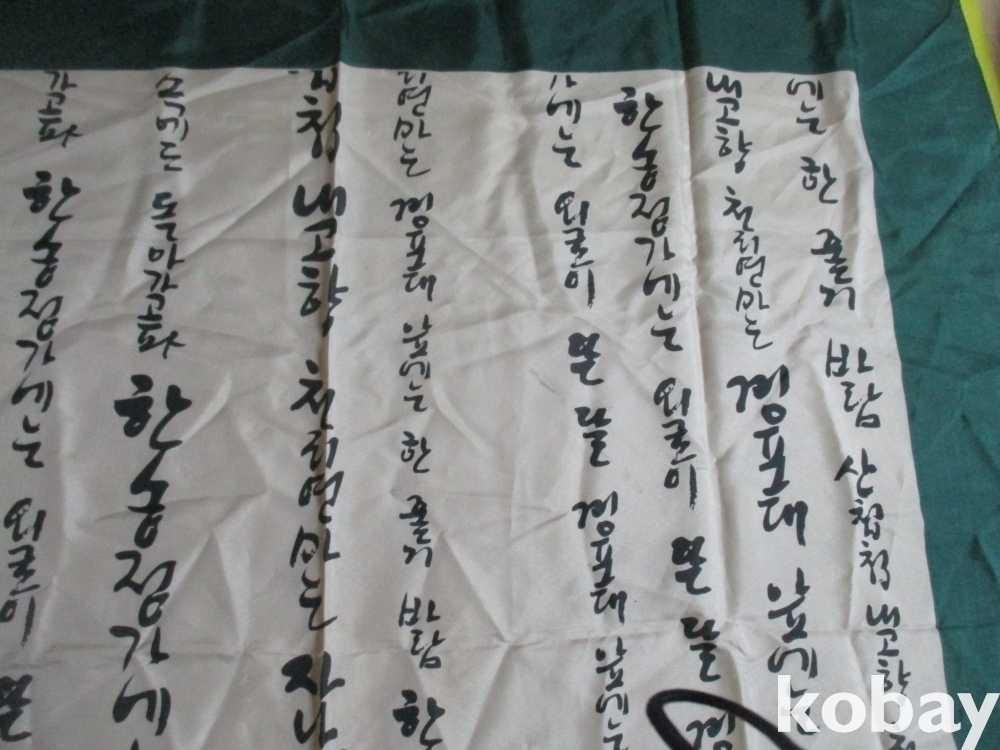 에는 한 줄기 바람 산첩첩 내고향
내고향 천리언마는 경포대 앞에는
한송정가에는 외로이 뜬 달 경
가에는 외로이 뜬 달 경포대 앞에는
리언마는 경포대 앞에는 한 줄기 바람 한
첩 내고향 천리언마는 자나
속에도 돌아가고파 한송정가에
가고파 한송정가에는 외로이 뜬
kobay